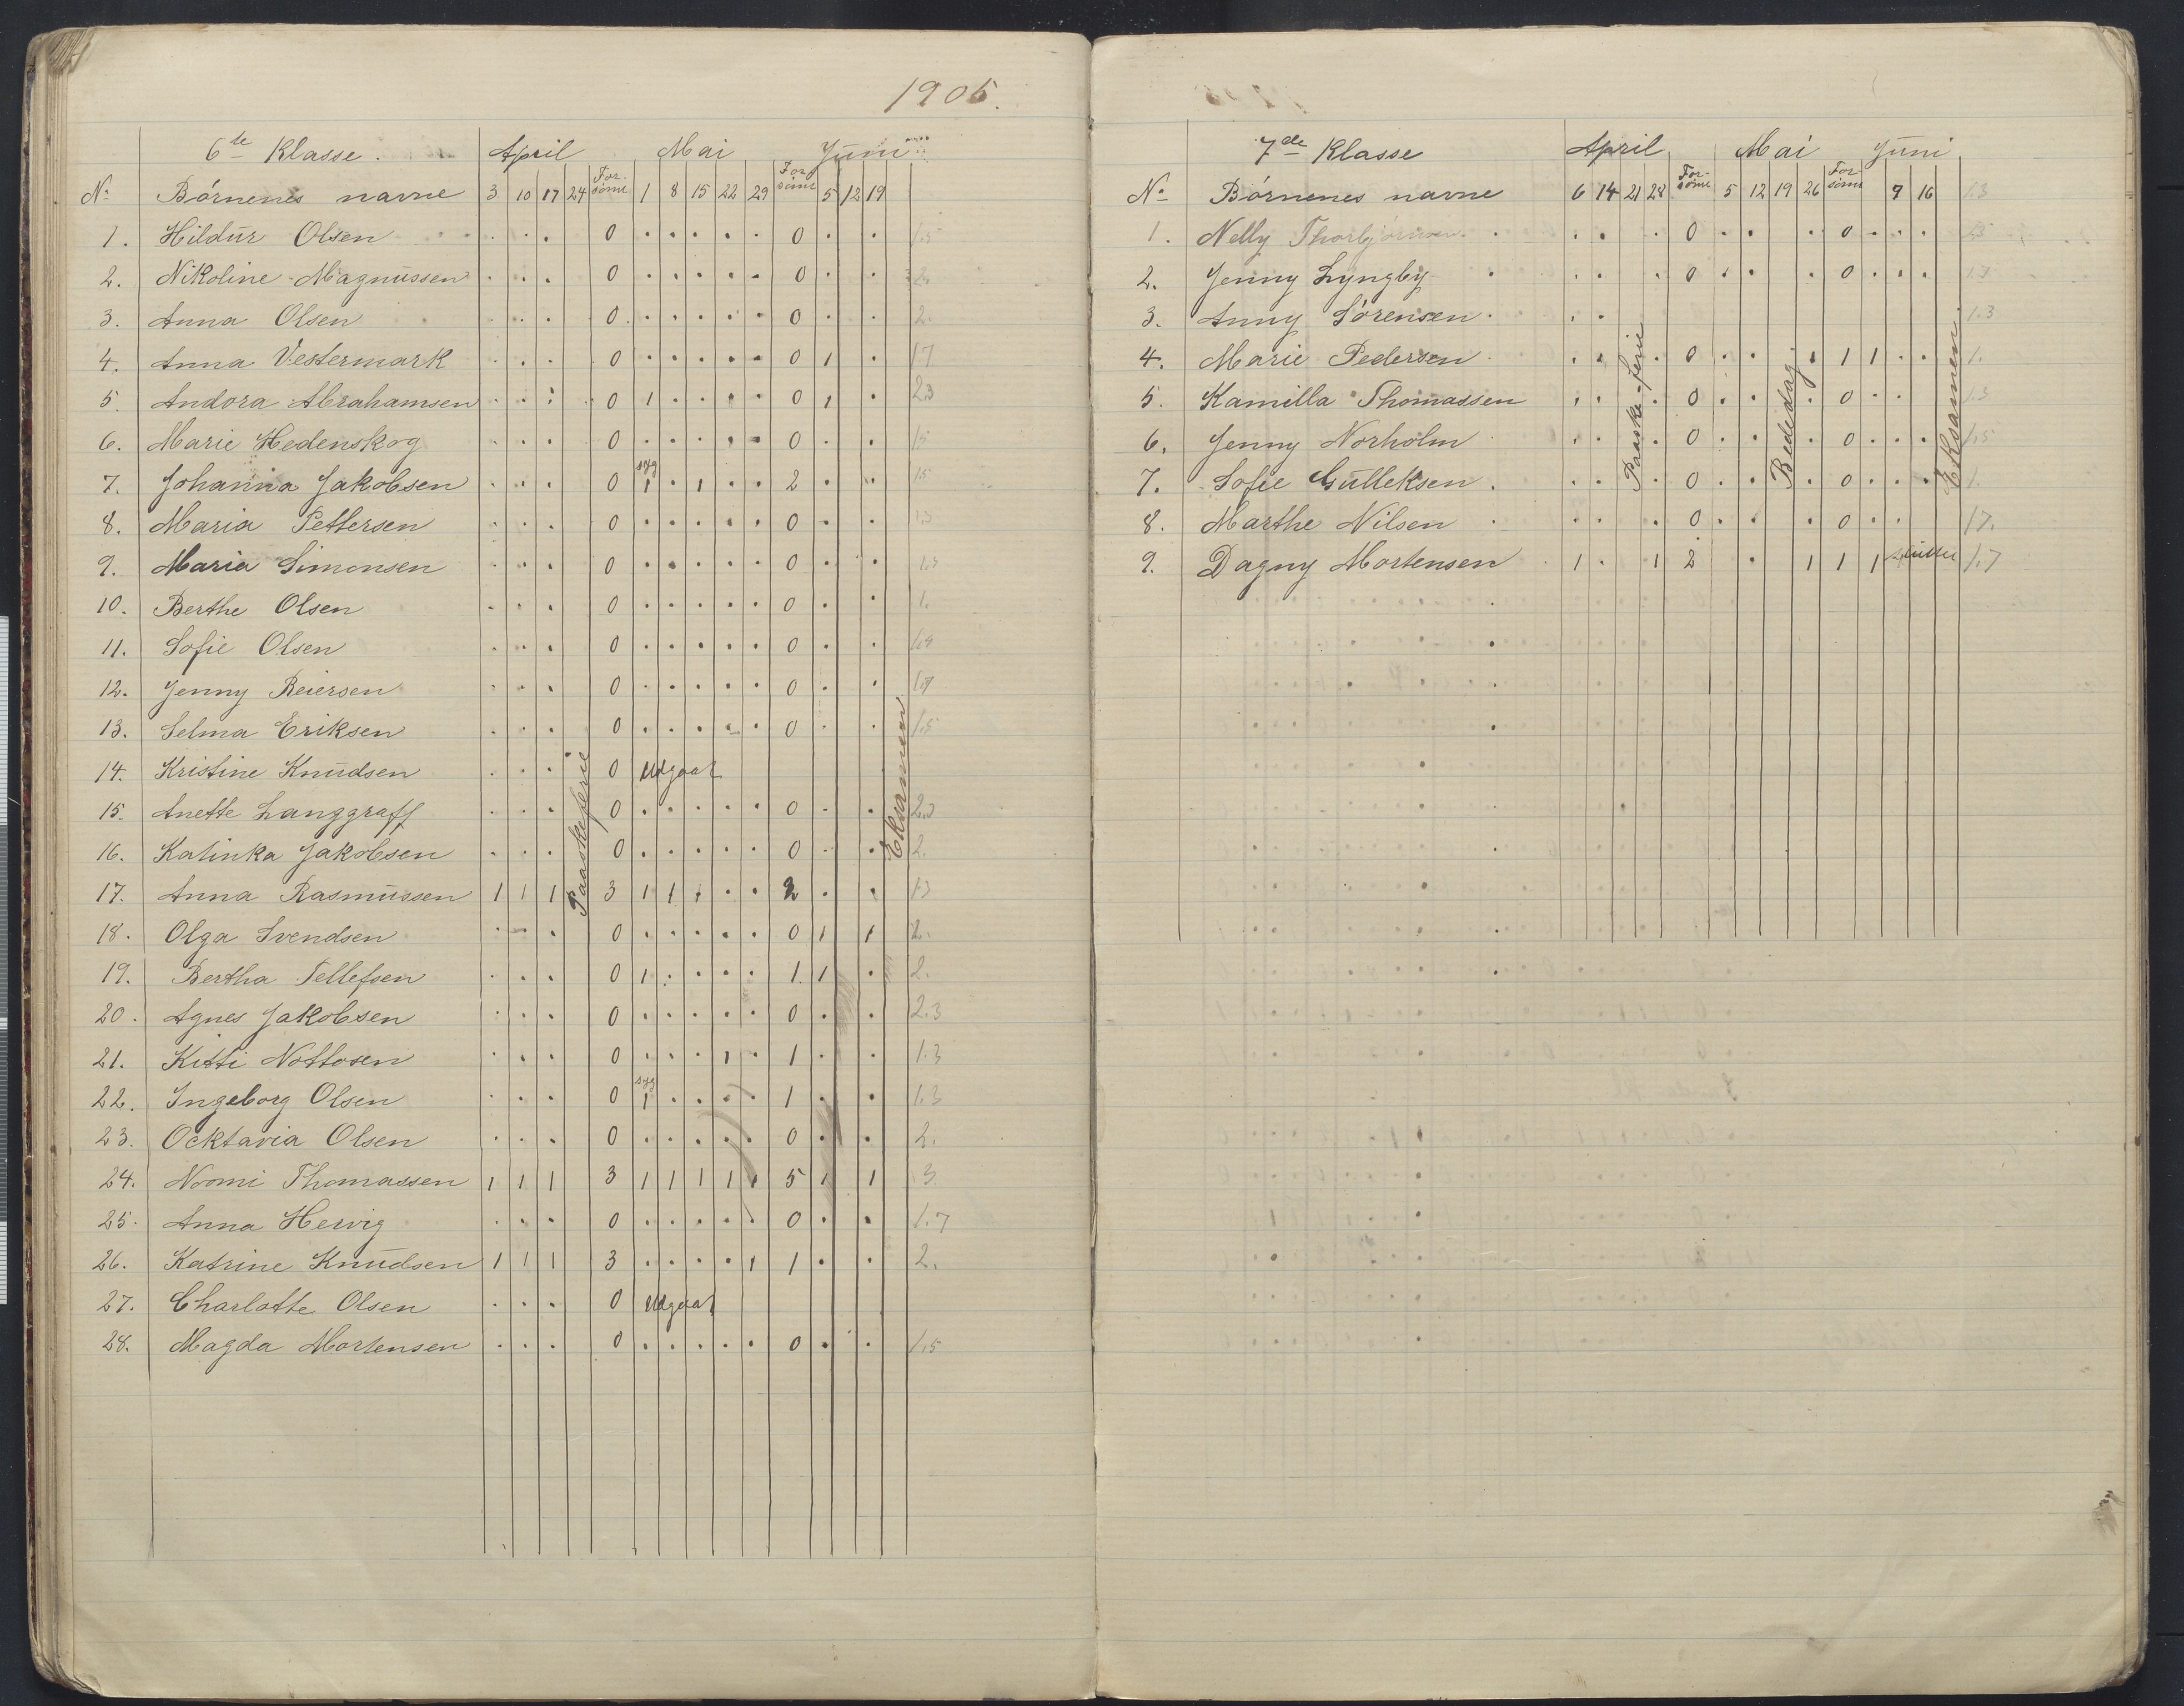 1905.
6te Klasse. April Mai Juni
No Börnenes navne 3 10 17 24 For-sömt 1 8 15 22 29 For sömt 5 12 19
1. Hildur Olsen . . . 0 . . . . . 0 . . 1.5
2. Nikoline Magnussen . . . 0 . . . . . 0 . . 2.
3. Anna Olsen . . . 0 . . . . . 0 . . 2.
4. Anna Vestermark . . . 0 . . . . . 0 1 . 1.7
5. Andora Abrahamsen . . . 0 1 . . . . 0 1 . 2.3
6. Marie Hedenskog . . . 0 . . . . . 0 . . 1.5
7. Johanna Jakobsen . . . 0 syg 1 . 1 . . 2 . . 1.5
8. Maria Pettersen . . . 0 . . . . . 0 . . 1.3
9. Maria Simonsen . . . 0 . . . . . 0 . . 1.3
10. Berthe Olsen . . . 0 . . . . . 0 . . 1.
11. Sofie Olsen . . . 0 . . . . . 0 . .
12. Jenny Reiersen . . . 0 . . . . . 0 . .
13. Selma Eriksen . . . 0 . . . . . 0 . . 1.5
14. Kristine Knudsen . . . 0 Udgaat
15. Anette Langgraff . . . 0 . . . . . 0 . . 2.3
16. Katinka Jakobsen . . . 0 . . . . . 0 . . 2.
17. Anna Rasmussen 1 1 1 3 1 1 1 . . 2 . . 1.3
18. Olga Svendsen . . . 0 . . . . . 0 1 1 2.
19. Bertha Tellefsen . . . 0 1 . . . . 1. 1 . 2.
20. Agnes Jakobsen . . . 0 . . . . . 0 . . 2.3
21. Kitti Nottosen . . . 0 . . . 1 . 1 . . 1.3
22. Ingeborg Olsen . . . 0 syg 1 . . . . 1 . . 1.3
23. Ocktavia Olsen . . . 0 . . . . . 0 . . 2.
24. Noomi Thomassen 1 1 1 3 1 1 1 1 1 5 1 1 3
25. Anna Hervig . . . 0 . . . . . 0 . . 1.7
26. Katrine Knudsen 1 1 1 3 . . . . 1 1 . . 2.
27. Charlotte Olsen . . . 0 Udgaat
28. Magda Mortensen . . . 0 . . . . . 0 . . 1.5
Paaskeferie
Eksamen
7de Klasse April Mai Juni
No Börnenes navne 6 14 21 28 For-sömt 5 12 19 26 For sömt 9 16 1.3
1. Nelly Thorbjörnsen . . . 0 . . . 0 . . .
2. Jenny Lyngby . . . 0 . . . 0 . . . 1.3
3. Anny Sörensen . . 1.3
4. Marie Pedersen . . . 0 . . . 1 1 . . 1.
5. Kamilla Thomassen . . . 0 . . . 0 . . 1.3
6. Jenny Norholm . . . 0 . . . 0 . . . 1.5
7. Sofie Gulleksen . . . 0 . . . 0 . . . 1.
8. Marthe Nilsen . . . 0 . . . 0 . . 1.7.
9. Dagny Mortensen 1 . 1 2 . 1 1 1 1.7
Paaske-ferie
Bededag
Eksamen.